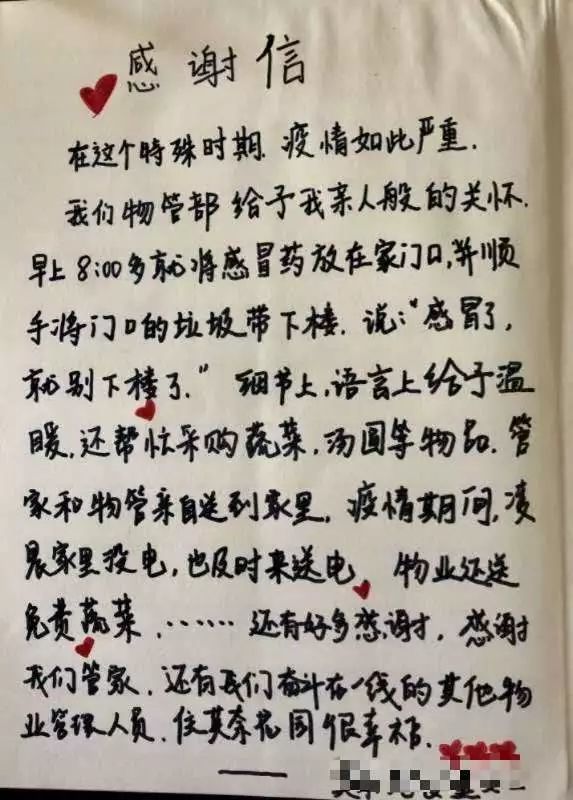 感谢信
在这个特殊时期.疫情如此严重.
我们物管部给予我亲人般的关怀.
早上8:00多就将感冒药放在家门口,并顺
手将门口的垃圾带下楼.说:"感冒了,
就别下楼了."细节上,语言上给予温
暖,还帮忙采购蔬菜,汤圆等物品.管
家和物管亲自送到家里.疫情期间,凌
晨家里没电,也及时来送电 物业还送
免费蔬菜......还有好多感谢,感谢
我们管家.还有我们奋斗在一线的其他物
业管理人员.住英奈花园很幸福.